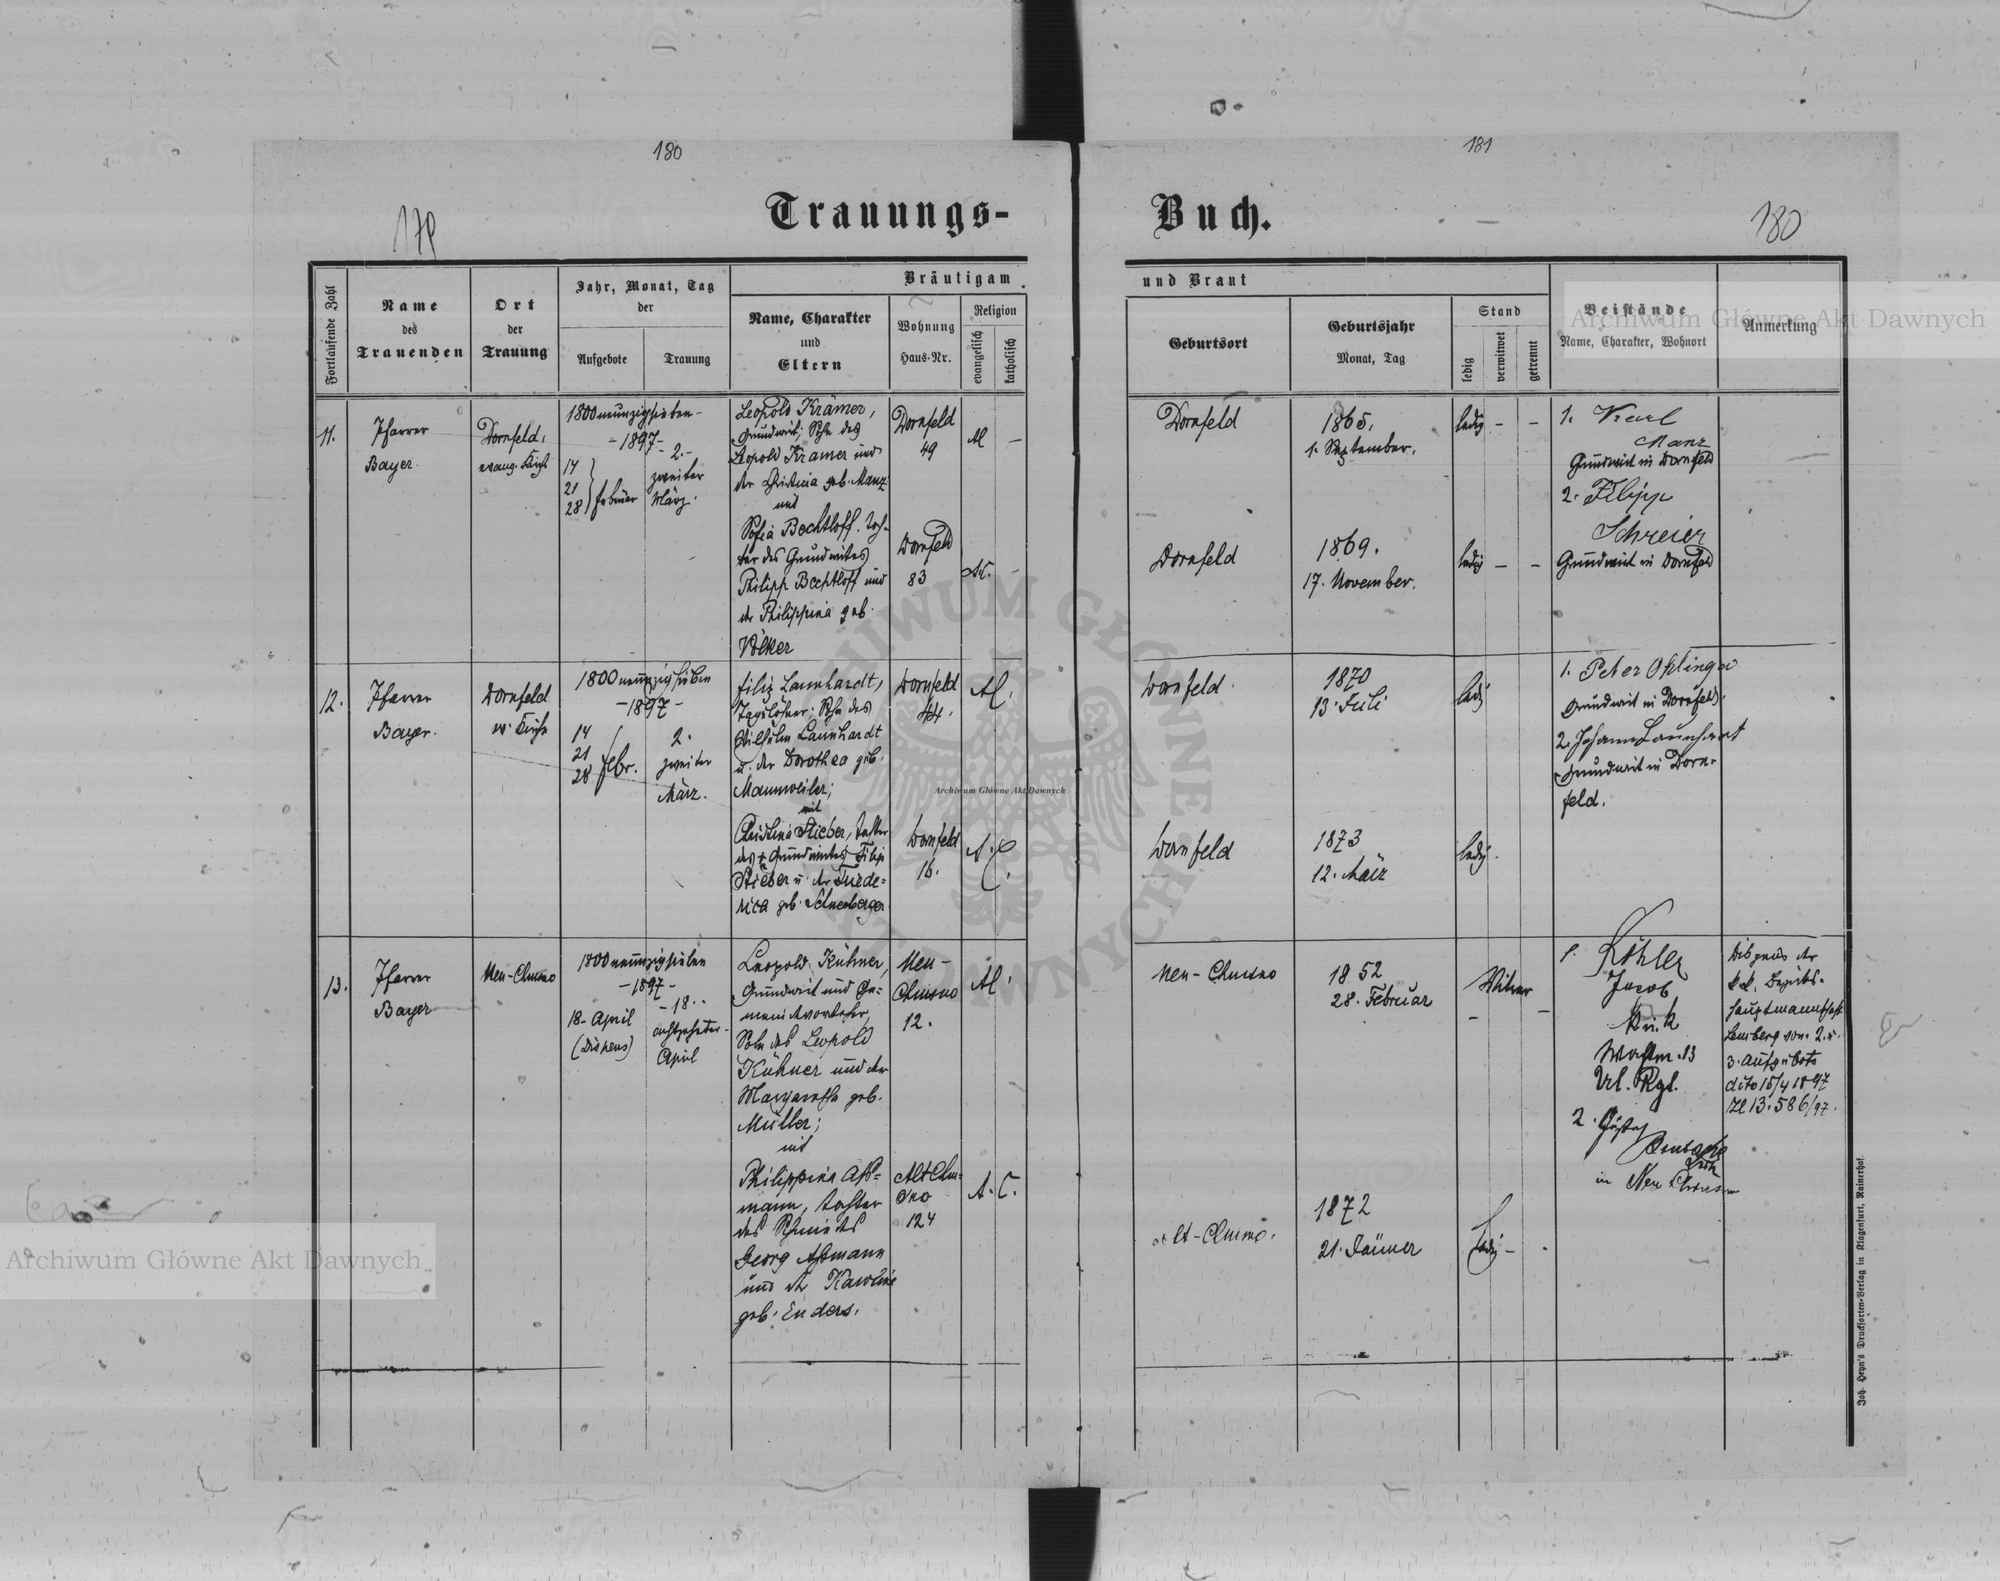 180
181
Trauungs-
Buch.
179
180
Fortlaufende Zahl
Name
des
Trauenden
Ort
der
Trauung
Jahr, Monat, Tag
der
Aufgebote
Trauung
Bräutigam
und Braut
Name, Charakter
und
Eltern
Wohnung
Haus-Nr.
Religion
evangelisch
katholisch
Geburtsort
Geburtsjahr
Monat, Tag
Stand
ledig
verwitwet
getrennt
Beistände
Name, Charakter, Wohnort
Anmerkung
11.
Pfarrer
Bayer.
Dornfeld,
evang. Kirche
1800neunzigsieben-
-1897-
14
21
28
Februar
2.-
zweiter
März.
Leopold Krämer,
Grundwirt, Sohn des
Leopold Kramer und
der Christina geb. Manz
mit
Sofia Bechtloff, Toch-
ter des Grundwirtes
Philipp Bechtloff und
der Philippina geb.
Völker
Dornfeld
49
Dornfeld
83
Dornfeld
1865,
1. September.
ledig - -
Dornfeld
1869.
17. November.
ledig - -
1. Karl
Manz
Grundwirt in Dornfeld
2. Filipp
Schreier
Grundwirt in Dornfeld
12.
Pfarrer
Bayer.
Dornfeld
ev. Kirche
1800neunzigsieben
-1897-
14
21
28
Febr.
2.
zweiter
März.
Filip Launhardt,
Taglöhner, Sohn des
Wilhelm Launhardt
u. der Dorothea geb.
Mannweiler;
mit
Christina Stieber, Tochter
des + Grundwirtes Filip
Stieber u. der Friede=
rica geb. Schneeberger
Dornfeld
44.
Dornfeld
16.
A. C.
Dornfeld
1870
13. Juli
ledig
Dornfeld
1873
12. März
ledig.
1. Peter Oklinger
Grundwirt in Dornfeld.
2. Johann Launhart
Grundwirt in Dorn=
feld.
13.
Pfarrer
Bayer
Neu-Chrusno
1800neunzigsieben
-1897-
18. April
(Dispens)
-18.-
achtzehnter
April
Leopold Kühner,
Grundwirt und Ge=
meindevorsteher,
Sohn des Leopold
Kühner und der
Margaretha geb.
Müller;
mit
Philippina Aß=
mann, Tochter
des Schmieds
Georg Aßmann
und der Karoline
geb. Enders.
Neu-
Chrusno
12.
Alt Chru=
sno
124
A. C.
Neu-Chrusno
1852
28. Februar
Witwer
Alt-Chrusno.
1872
21. Jänner
ledig -
1. Köhler
Jacob
k. u. k.
Wachtm. 13
Url. Rgt.
2. Gustav
in Neu Chrusno
Dispens der
k.k. Bezirks-
hauptmannschaft
Lemberg vom 2. u.
3. Aufgebote
dito 15/4 1897
Zl 13.586/97.
Joh. Heyn's Drucksorten-Verlag in Klagenfurt, Rainerhof.
Archiwum Główne Akt Dawnych
Archiwum Główne Akt Dawnych
Archiwum Główne Akt Dawnych
ARCHIWUM GŁÓWNE AKT DAWNYCH